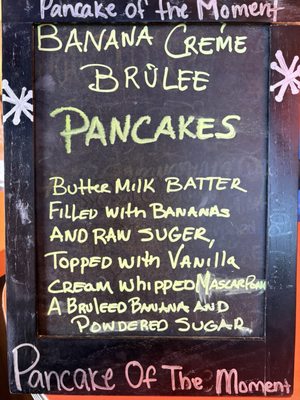 Pancake of the Moment
BANANA CRÈME
BRÛLEE
PANCAKES
ButterMilk BATTER
Filled with Bananas
AND RAW SUGER,
Topped with Vanilla
CREAM WHIPPED MASCARPONE
A Bruleed Banana AND
Powdered Sugar
Pancake Of The Moment